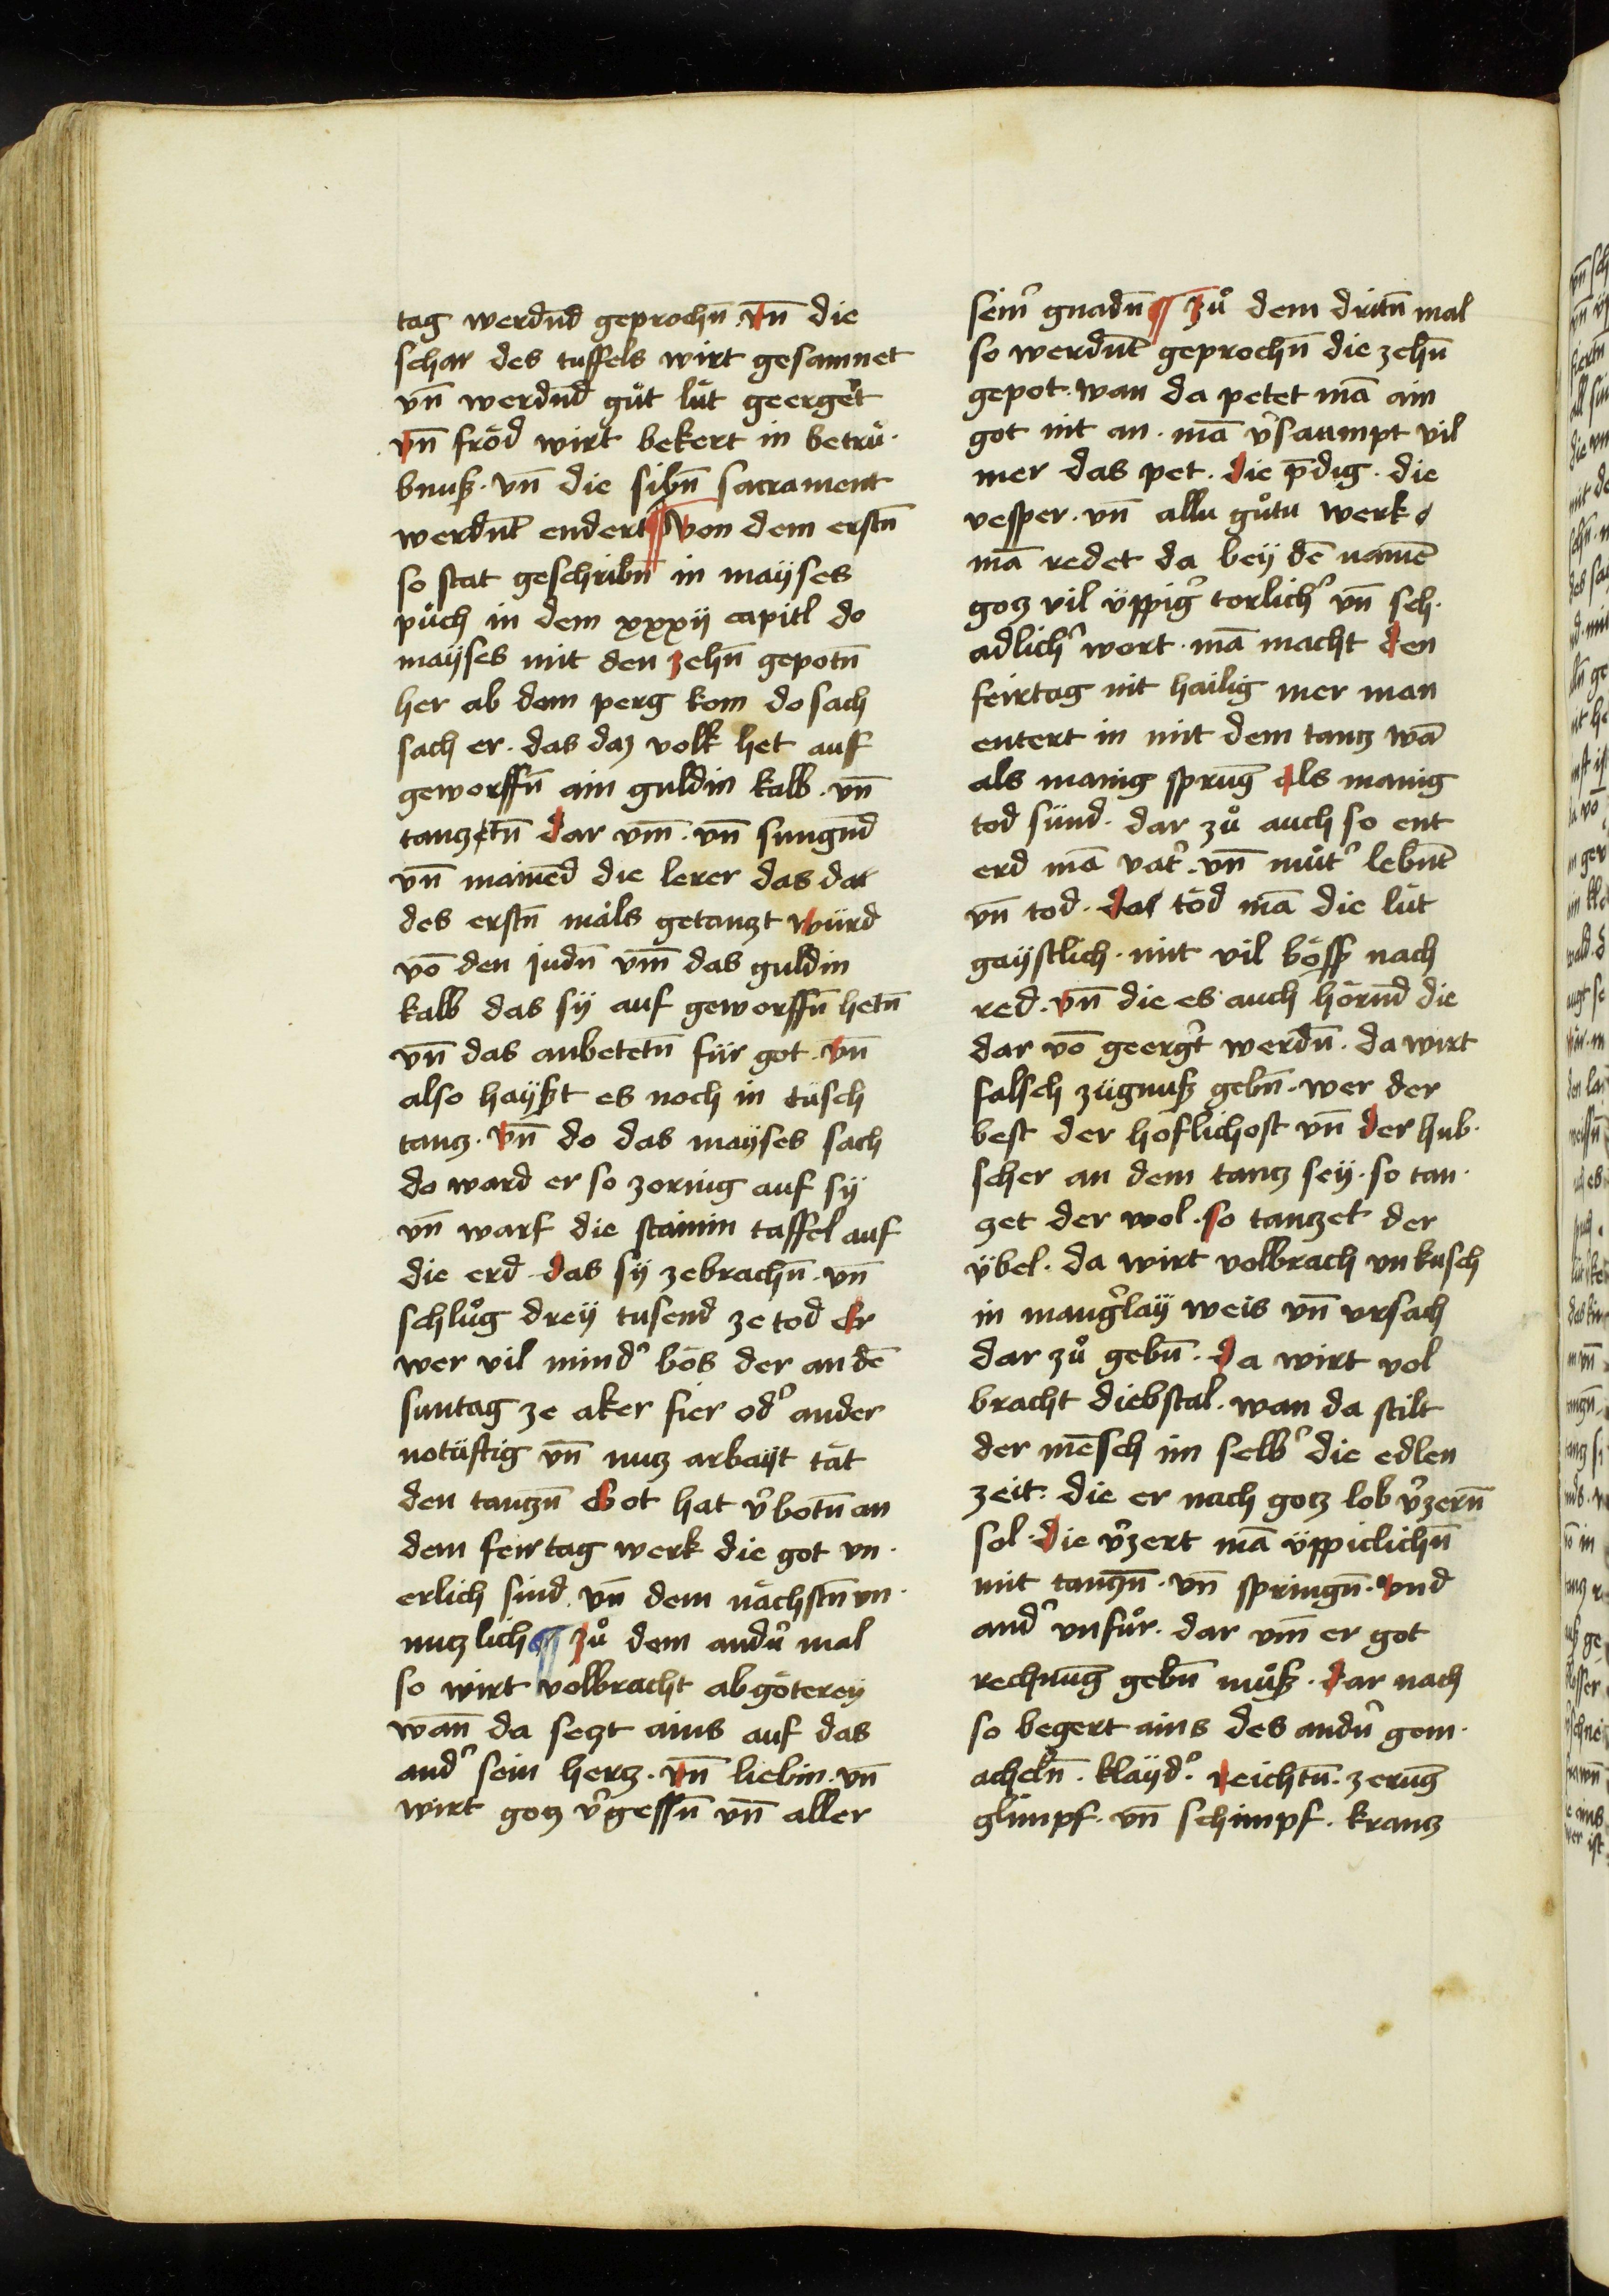 tag werdnd geprochn̄ . vn̄ die
schar des tuffels wirt gesamnet
vn̄ werdnd gůt lüt geergert
vn̄ fröd wirt bekert in betrů .
bnuß . vn̄ die sibn̄ sacrament
werdnt endert ¶ Von dem erstn̄
so stat geschribn̄ in mayses
půch in dem xxxij capitl do
mayses mit den zehn̄ gepotn̄
her ab dem perg kom do sach
sach er . das daz volk het auf
geworffn̄ ain guldin kalb . vn̄
tanzetn̄ dar vm̄ . vn̄ sungnd
vn̄ mainēd die lerer das dat
des erstn̄ mäls getanzt würd
vō den judn̄ vm̄ das guldin
kalb das sÿ auf geworffn̄ hetn̄
vn̄ das anbetetn̄ für got . vn̄
also hayßt es noch in tüsch
tanz . vn̄ do das mayses sach
do ward er so zornig auf sÿ
vn̄ warf die stainin taffel auf
die erd . das sÿ zebrachn̄ . vn̄
schlůg dreÿ tusend ze tod Er
wer vil mind' bös der an dē
suntag ze aker fier od' ander
notüftig vn̄ nuz arbayt tät
den tanzn̄ Got hat v'botn̄ an
dem feirtag werk die got vn .
erlich sind . vn̄ dem nächstn̄ vn .
nuzlich ¶ zů dem andn' mal
so wirt volbracht abgöterey
wan̄ da sezt ains auf das
and' sein herz . vn̄ liebin . vn̄
wirt goz v'gessn̄ vn̄ aller
sein' gnadn̄ ¶ Zů dem dritn̄ mal
so werdnt geprochn̄ die zehn̄
gepot . wan da petet mā ain
got nit an . mā v'saumpt vil
mer das pet . die p̄dig . die
vesper . vn̄ allu gůtu werk
mā redet da beÿ dē namē
goz vil üppig' torlich' vn̄ sch .
adlich' wort . mā macht den
feirtag nit hailig mer man
entert in mit dem tanz wā
als manig sprung als manig
tod sünd . dar zů auch so ent
erd mā vat' . vn̄ můt' lebnt
vn̄ tod . das töd mā die lüt
gaystlich . mit vil böss nach
red . vn̄ die es auch hörnd die
dar vō geerg't werdn̄ . da wirt
falsch zügnuß gebn̄ . wer der
best der höflichost vn̄ der hub .
scher an dem tanz sey . so tan .
zet der wol . so tanzet der
übel . da wirt volbrach vnkusch
in mang'lay weis vn̄ vrsach
dar zů gebn̄ . Da wirt vol
bracht diebstal . wan da stilt
der mēsch im selb' die edlen
zeit . die er nach goz lob v'zern̄
sol . die v'zert mā üppiclichn̄
mit tanzn̄ . vn̄ springn̄ . vnd
and' vnfůr . dar vm̄ er got
rechnung gebn̄ můß . dar nach
so begert ains des andn' gem .
acheln̄ . klayd' . reichtū . zerung
glimpf . vn̄ schimpf . kranz